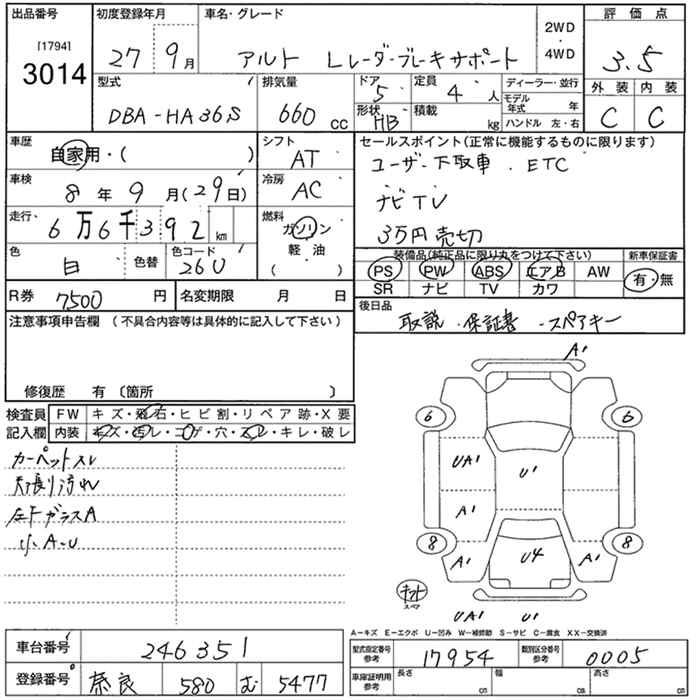 出品番号 初度登録年月 車名・グレード 評価点
[1794] 3014 27 9月 アルト Lレーダ・ブレーキサポート 2WD・4WD 3.5
型式 排気量 ドア 5 定員 4人 ディーラー・並行 外装 内装
DBA-HA36S 660cc 形状 HB 積載 kg モデル年式 年 C C
ハンドル 左・右
車歴 自家用・( ) シフト AT セールスポイント(正常に機能するものに限ります)
ユーザー下取車. ETC
車検 8年9月(29日) 冷房 AC
ナビTV
走行 6万6千392km 燃料 ガソリン 軽・油 ( )
3万円売切
色 白 色替 色コード 26U
装備品(純正品に限り丸をつけて下さい) 新車保証書
PS PW ABS エアB AW 有・無
SR ナビ TV カワ
R券 7500円 名変期限 月 日
後日品 取説・保証書・スペアキー
注意事項申告欄(不具合内容等は具体的に記入して下さい)
修復歴 有〔箇所 〕
検査員 FW キズ・飛石・ヒビ割・リペア跡・X要
記入欄 内装 キズ・汚レ・コゲ・穴・スレ・キレ・破レ
カーペットスレ
天張り汚れ
左下ガラスA
小A-U
A1
6 6
UA1 U1
A1
8 8
A1 U4 A1
キット
スペア
UA1 U1
A-キズ E-エクボ U-凹み W-補修跡 S-サビ C-腐食 XX-交換済
車台番号 246351
型式指定番号 参考 17954 類別区分番号 参考 0005
登録番号 奈良 580 む 5477
車庫証明用 参考 長さ cm 幅 cm 高さ cm